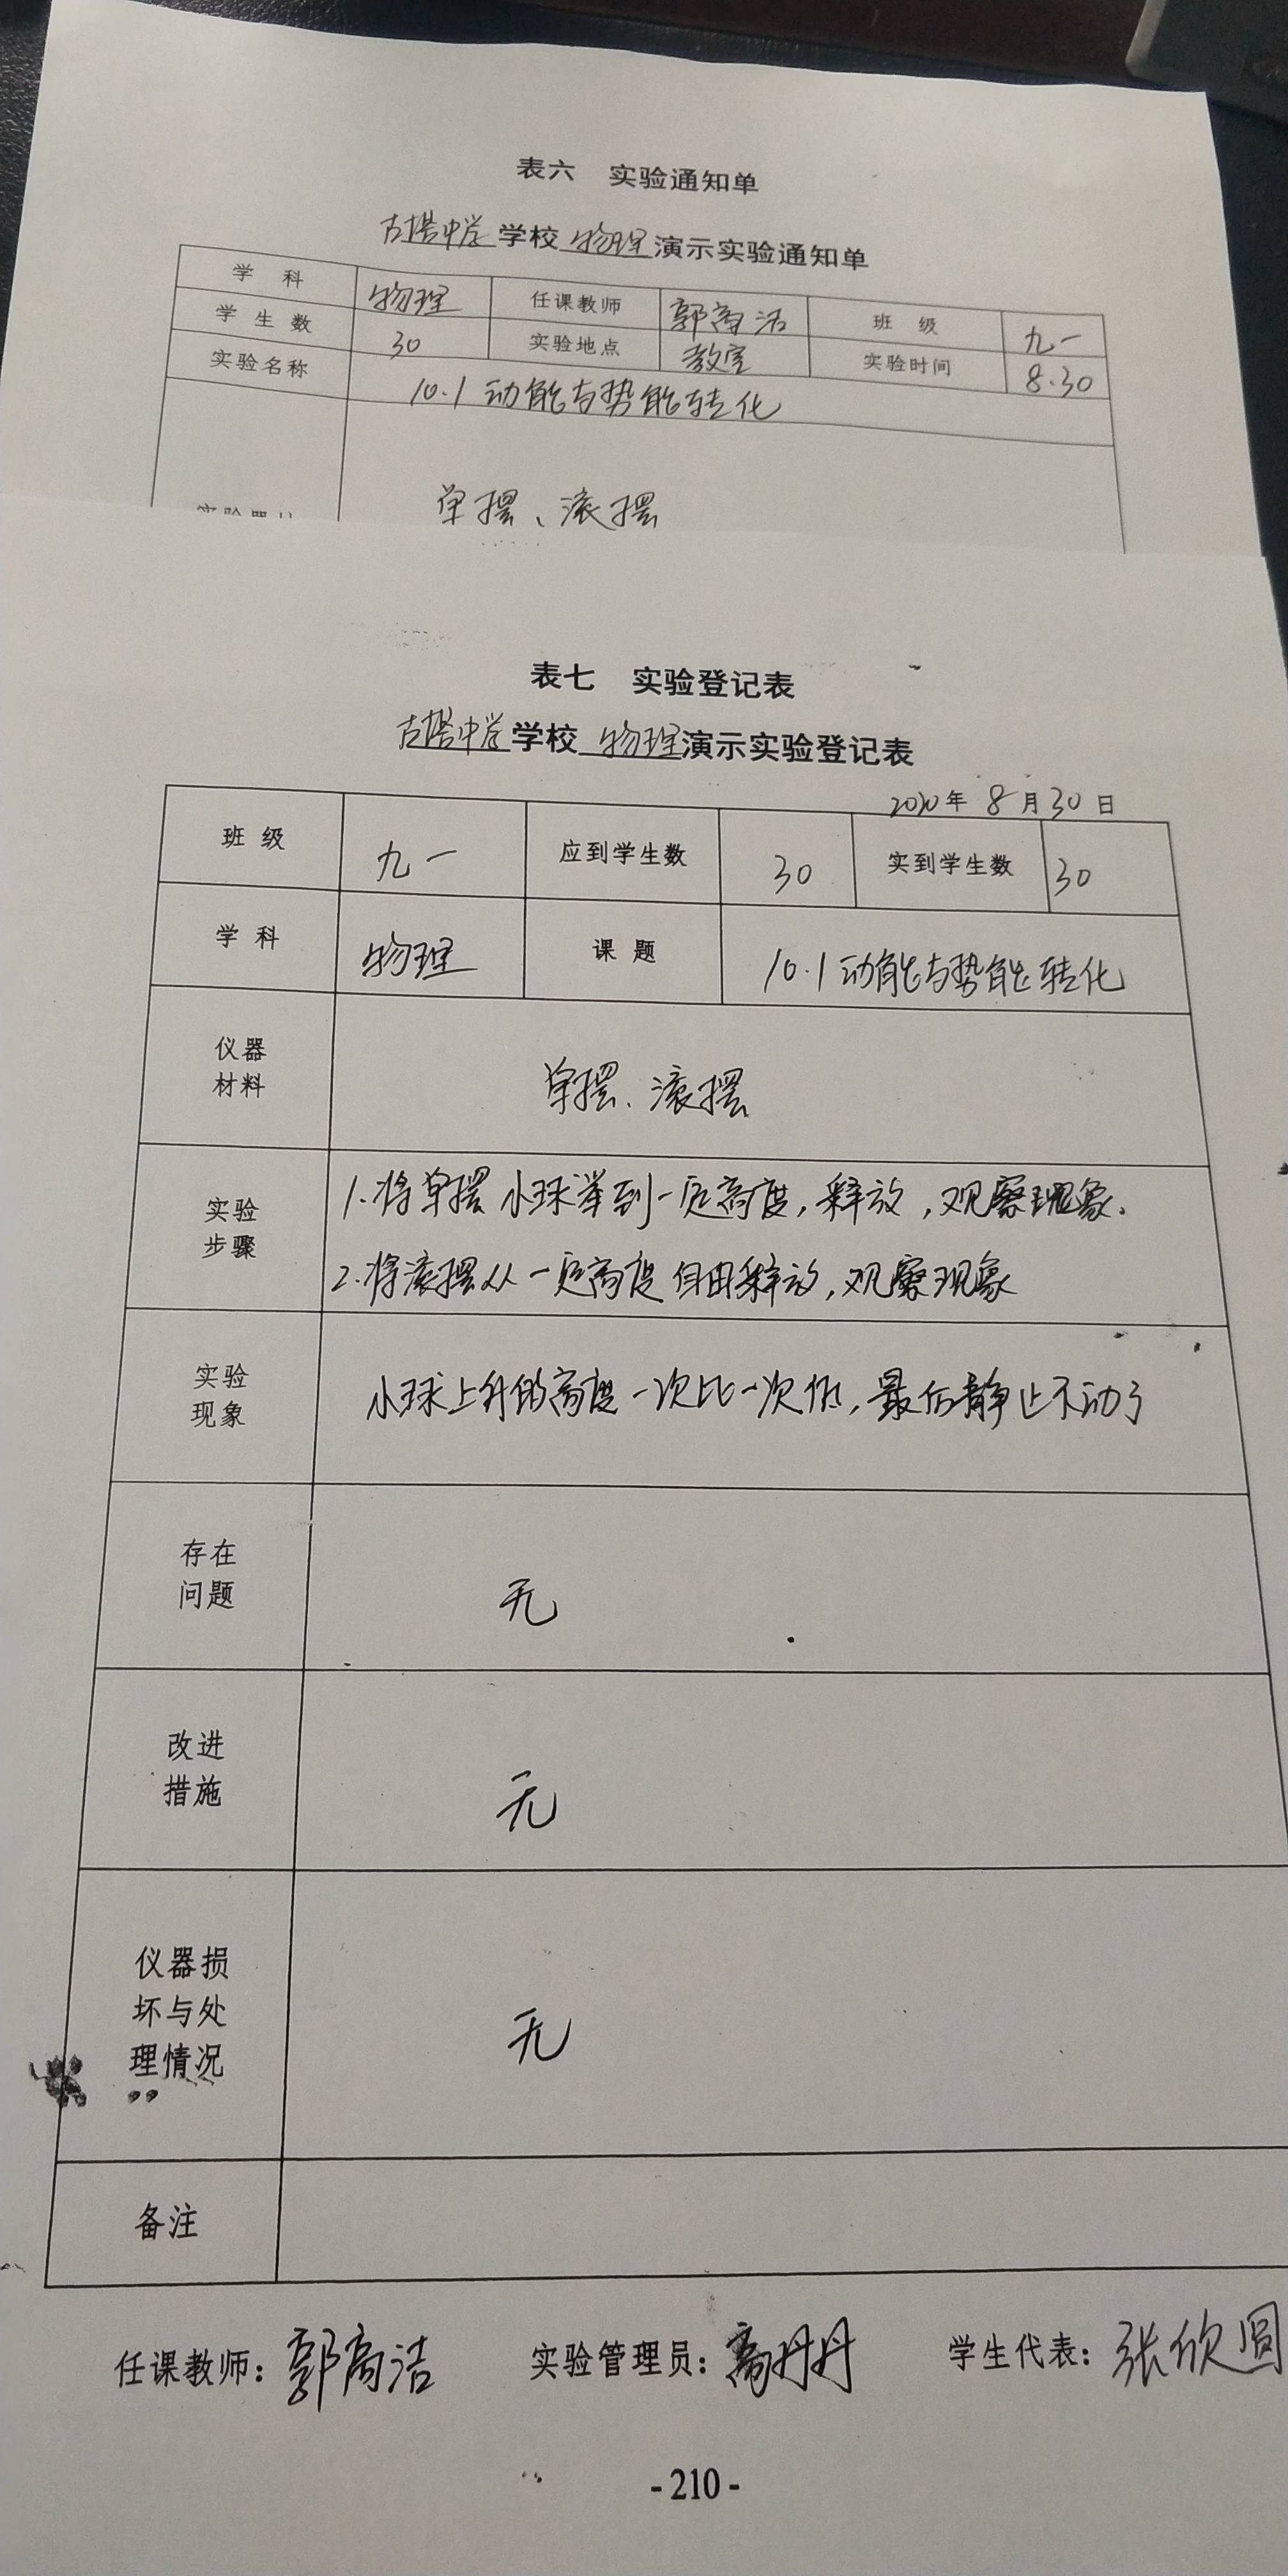 表六 实验通知单
古塔中学学校物理演示实验通知单
学科 物理 任课教师 郭商洁 班级 九一
学生数 30 实验地点 教室 实验时间 8.30
实验名称 10.1动能与势能转化
单摆、滚摆
表七 实验登记表
古塔中学学校物理演示实验登记表
2020年8月30日
班级 九一 应到学生数 30 实到学生数 30
学科 物理 课题 10.1动能与势能转化
仪器
材料
单摆、滚摆
实验
步骤
1.将单摆小球举到一定高度,释放,观察现象.
2.将滚摆从一定高度自由释放,观察现象
实验
现象
小球上升的高度一次比一次低,最后静止不动了
存在
问题
无
改进
措施
无
仪器损
坏与处
理情况
无
备注
任课教师:郭商洁 实验管理员:高丹丹 学生代表:张欣圆
-210-